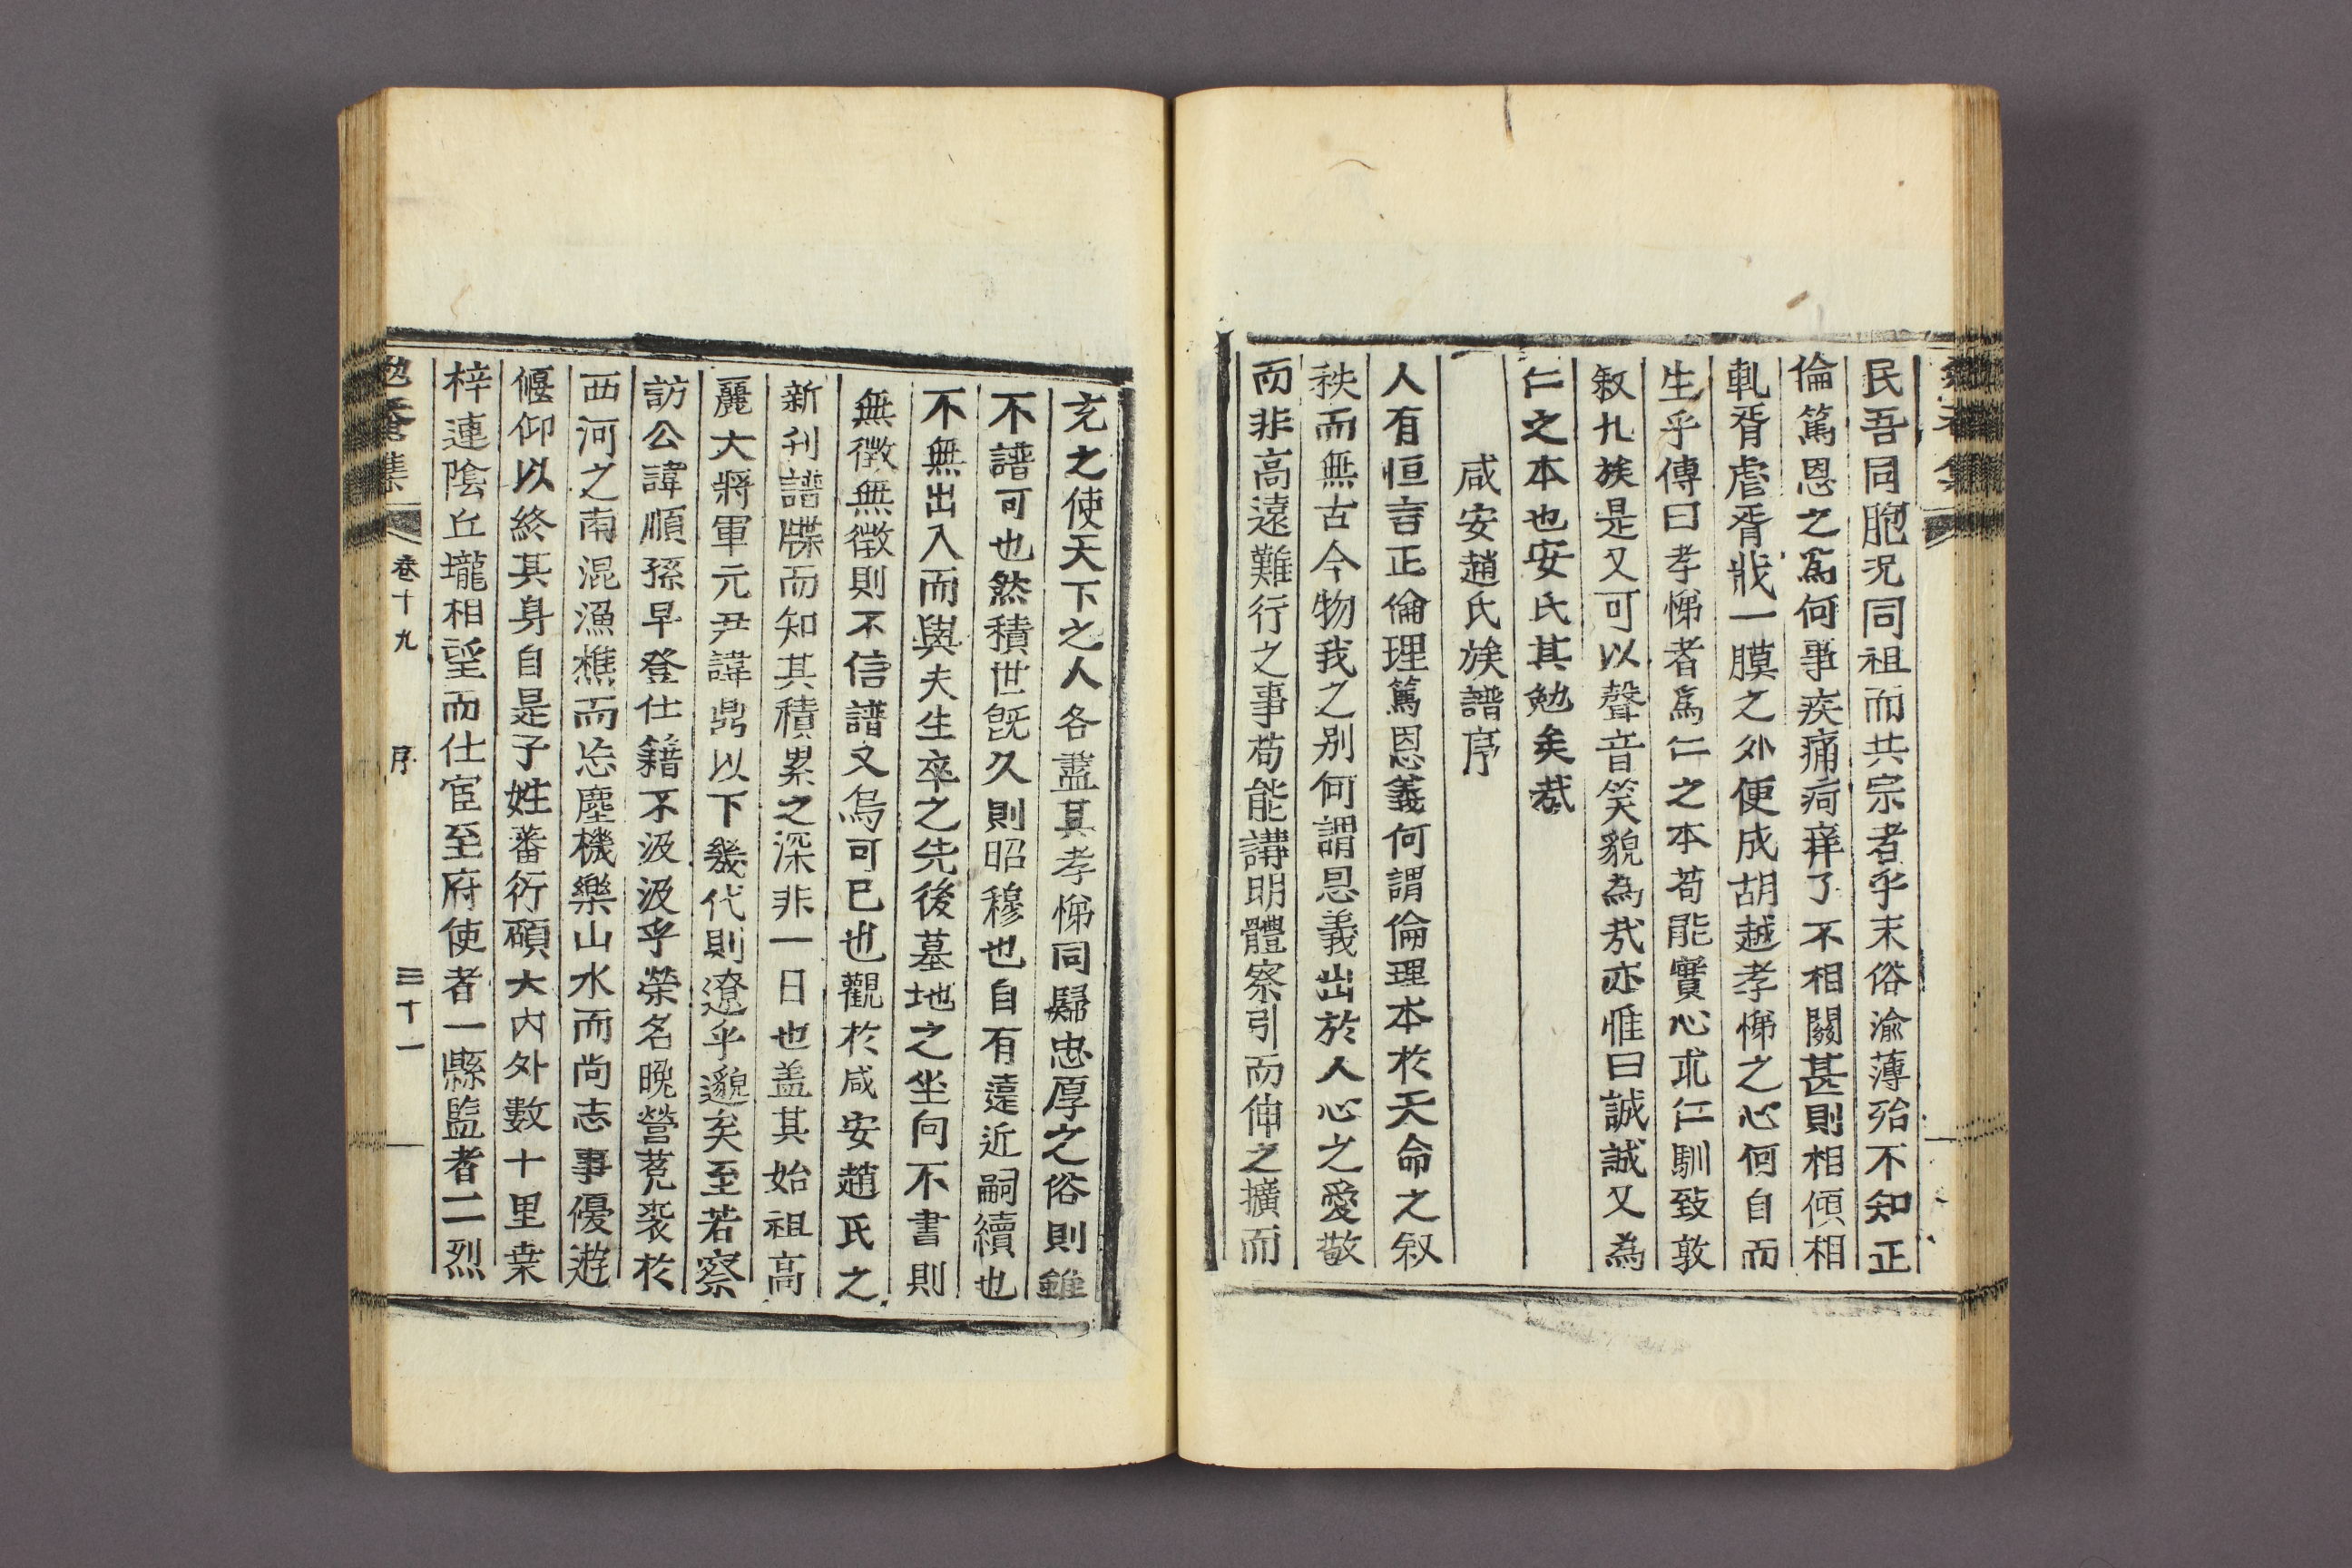 民吾同胞况同祖而共宗者乎末俗渝薄殆不知正
倫篤恩之爲何事疾痛疴痒了不相關甚則相傾相
軋胥虐胥戕一膜之外便成胡越孝悌之心何自而
生乎傳曰孝悌者爲仁之本苟能實心求仁馴致敦
叙九族是又可以聲音笑貌為㦲亦惟曰誠誠又為
仁之本也安氏其勉矣㦲
咸安趙氏族譜序
人有恒言正倫理篤恩義何謂倫理本於天命之叙
秩而無古今物我之別何謂恩義出於人心之愛敬
而非高遠難行之事苟能講明體察引而伸之擴而
充之使天下之人各盡其孝悌同歸忠厚之俗則雖
不譜可也然積世旣久則昭穆也自有遠近嗣續也
不無出入而與夫生卒之先後墓地之坐向不書則
無徵無徵則不信譜又烏可已也觀於咸安趙氏之
新刊譜牒而知其積累之深非一日也盖其始祖高
麗大將軍元尹諱鼎以下幾代則遼乎邈矣至若察
訪公諱順孫早登仕籍不汲汲乎榮名晩營菟裘於
西河之南混漁樵而忘塵機樂山水而尚志事優遊
偃仰以終其身自是子姓蕃衍碩大內外數十里桒
梓連陰丘壠相望而仕宦至府使者一縣監者二烈
勉菴集 卷十九 序 三十一